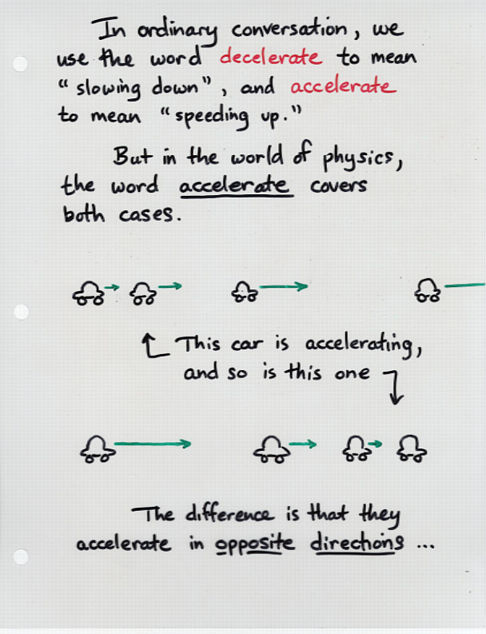 In ordinary conversation, we
use the word decelerate to mean
"slowing down", and accelerate
to mean "speeding up."
But in the world of physics,
the word accelerate covers
both cases.
This car is accelerating,
and so is this one
The difference is that they
accelerate in opposite directions ...